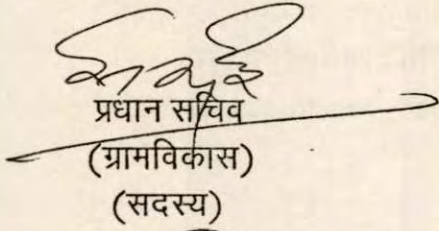 प्रधान सचिव
(ग्रामविकास)
(सदस्य)